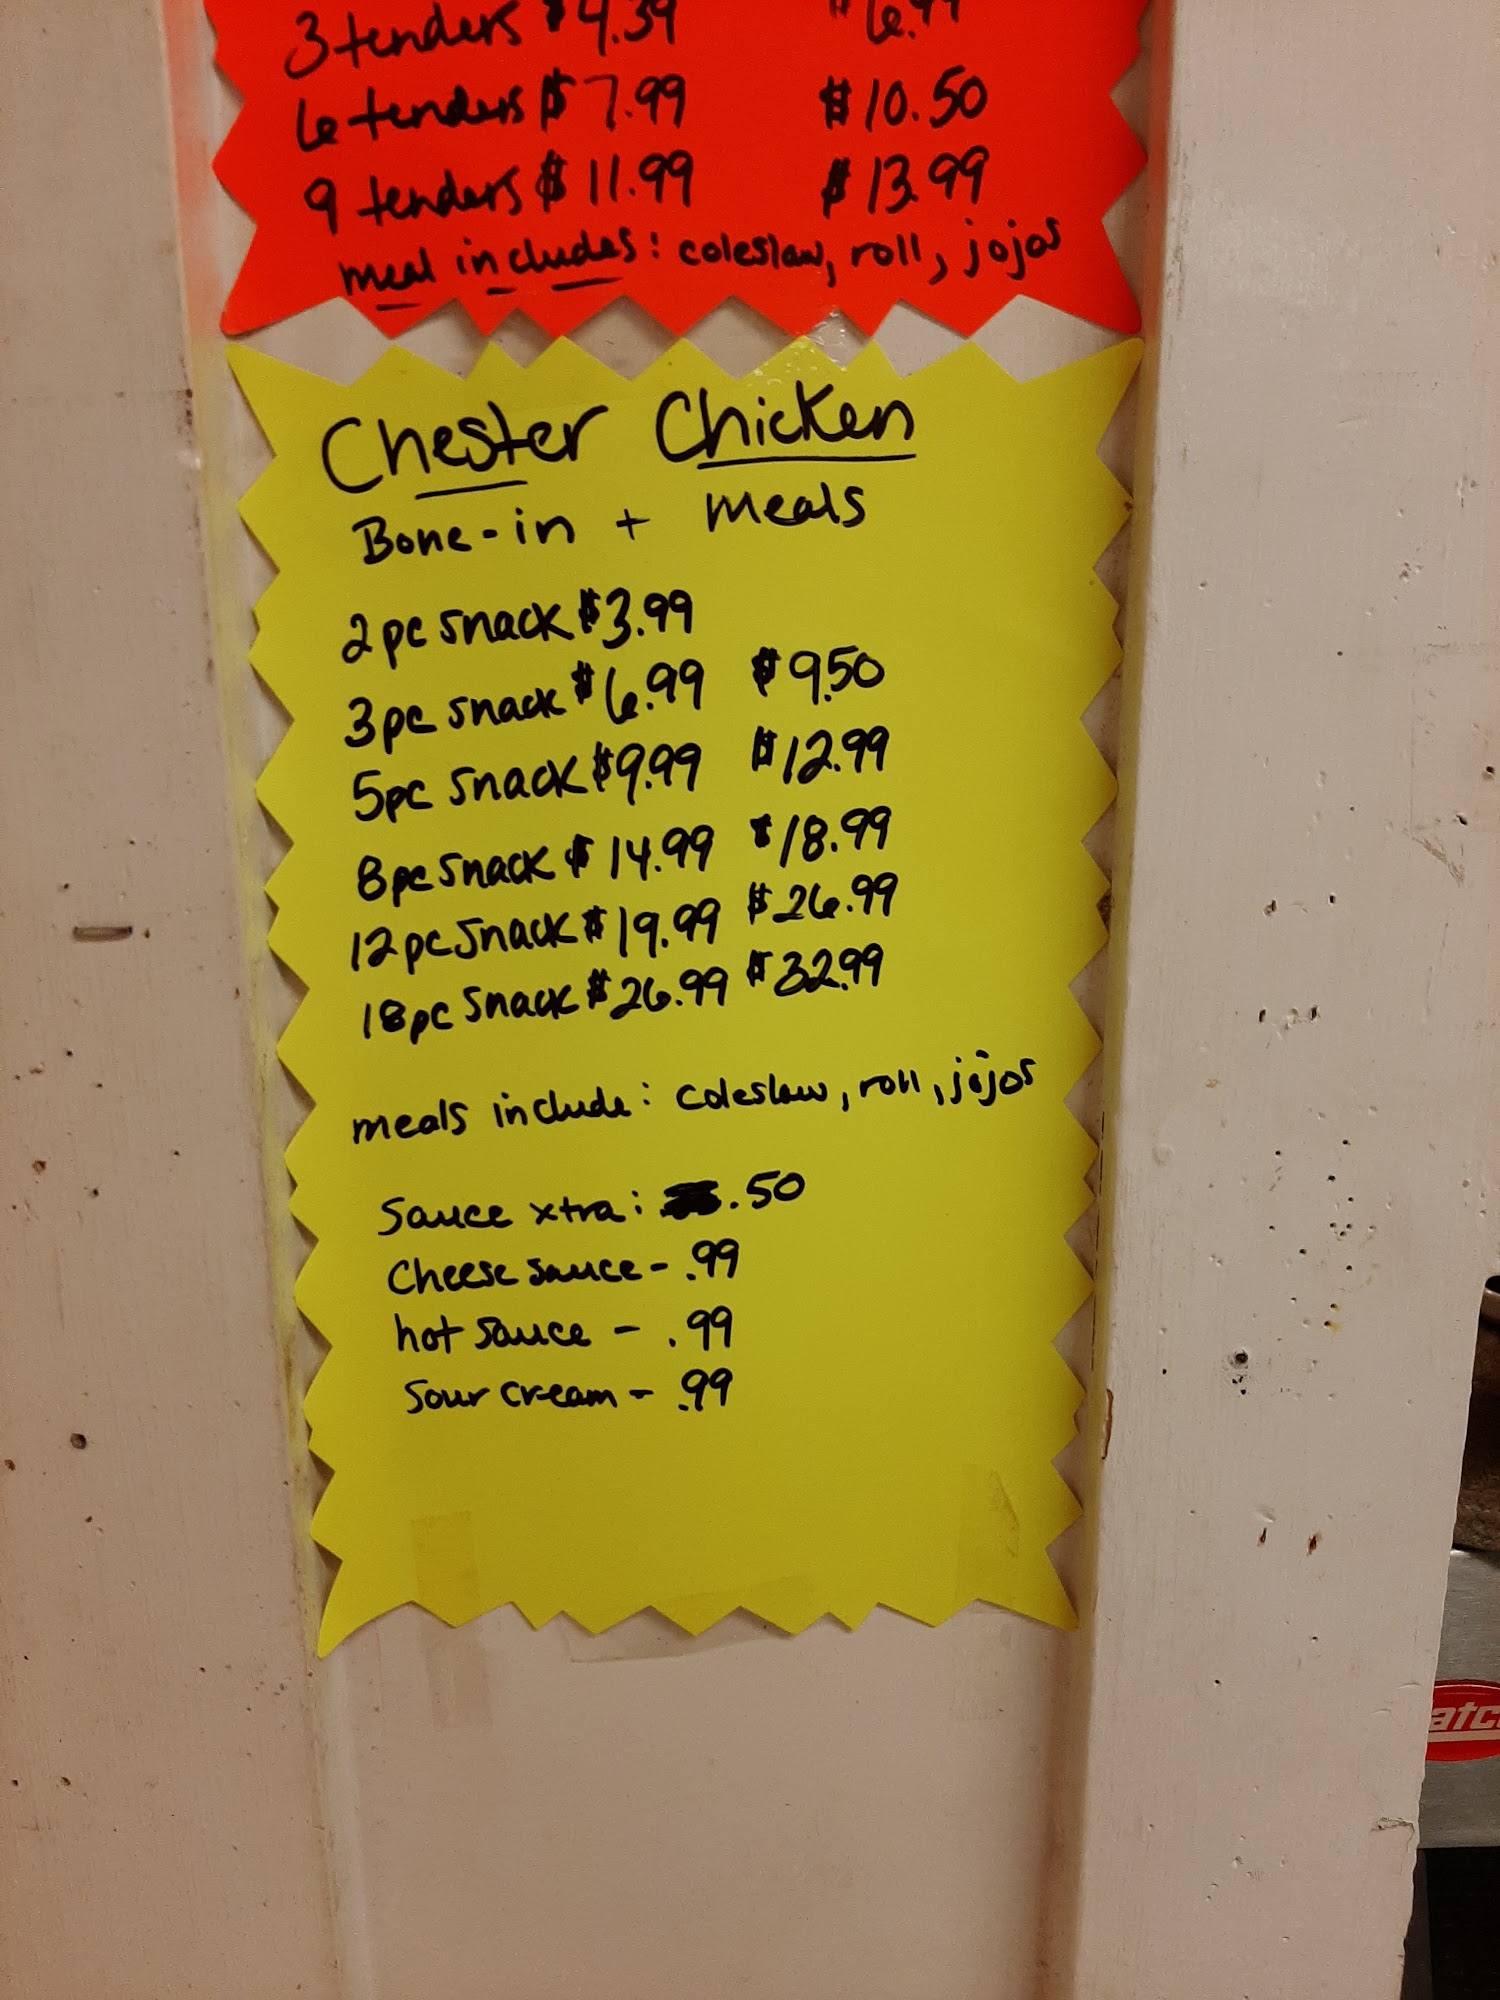 3 tenders $4.39 $6.99
6 tenders $7.99 $10.50
9 tenders $11.99 $13.99
meal includes: coleslaw, roll, jojos
Chester Chicken
Bone-in + meals
2pc snack $3.99
3pc snack $6.99 $9.50
5pc snack $9.99 $12.99
8pc snack $14.99 $18.99
12pc snack $19.99 $26.99
18pc snack $26.99 $32.99
meals include: coleslaw, roll, jojos
Sauce xtra: .50
Cheese sauce - .99
hot sauce - .99
Sour cream - .99